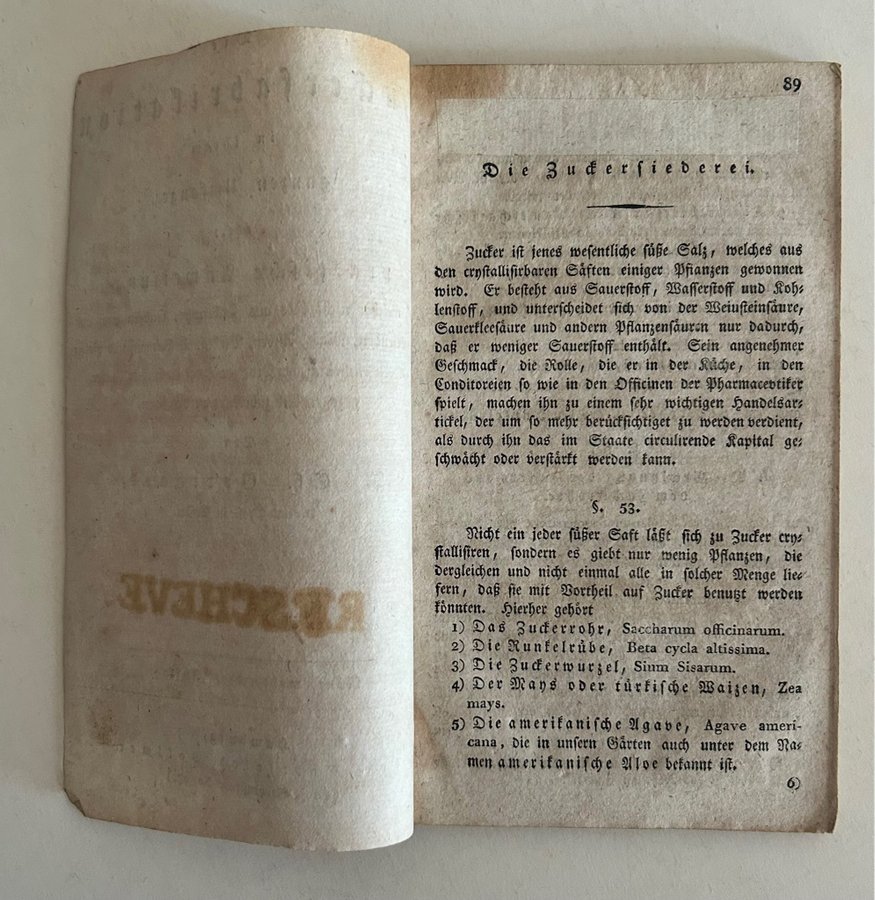 89
Die Zuckersiederei.
Zucker ist jenes wesentliche süße Salz, welches aus
den crystallisirbaren Säften einiger Pflanzen gewonnen
wird. Er besteht aus Sauerstoff, Wasserstoff und Koh-
lenstoff, und unterscheidet sich von der Weinsteinsäure,
Sauerkleesäure und andern Pflanzensäuren nur dadurch,
daß er weniger Sauerstoff enthält. Sein angenehmer
Geschmack, die Rolle, die er in der Küche, in den
Conditoreien so wie in den Officinen der Pharmacevtiker
spielt, machen ihn zu einem sehr wichtigen Handelsar-
tickel, der um so mehr berücksichtiget zu werden verdient,
als durch ihn das im Staate circulirende Kapital ge-
schwächt oder verstärkt werden kann.
§. 53.
Nicht ein jeder süßer Saft läßt sich zu Zucker cry-
stallisiren, sondern es giebt nur wenig Pflanzen, die
dergleichen und nicht einmal alle in solcher Menge lie-
fern, daß sie mit Vortheil auf Zucker benutzt werden
könnten. Hierher gehört
1) Das Zuckerrohr, Saccharum officinarum.
2) Die Runkelrübe, Beta cycla altissima.
3) Die Zuckerwurzel, Sium Sisarum.
4) Der Mays oder türkische Waizen, Zea
mays.
5) Die amerikanische Agave, Agave ameri-
cana, die in unsern Gärten auch unter dem Na-
men amerikanische Aloe bekannt ist.
6)